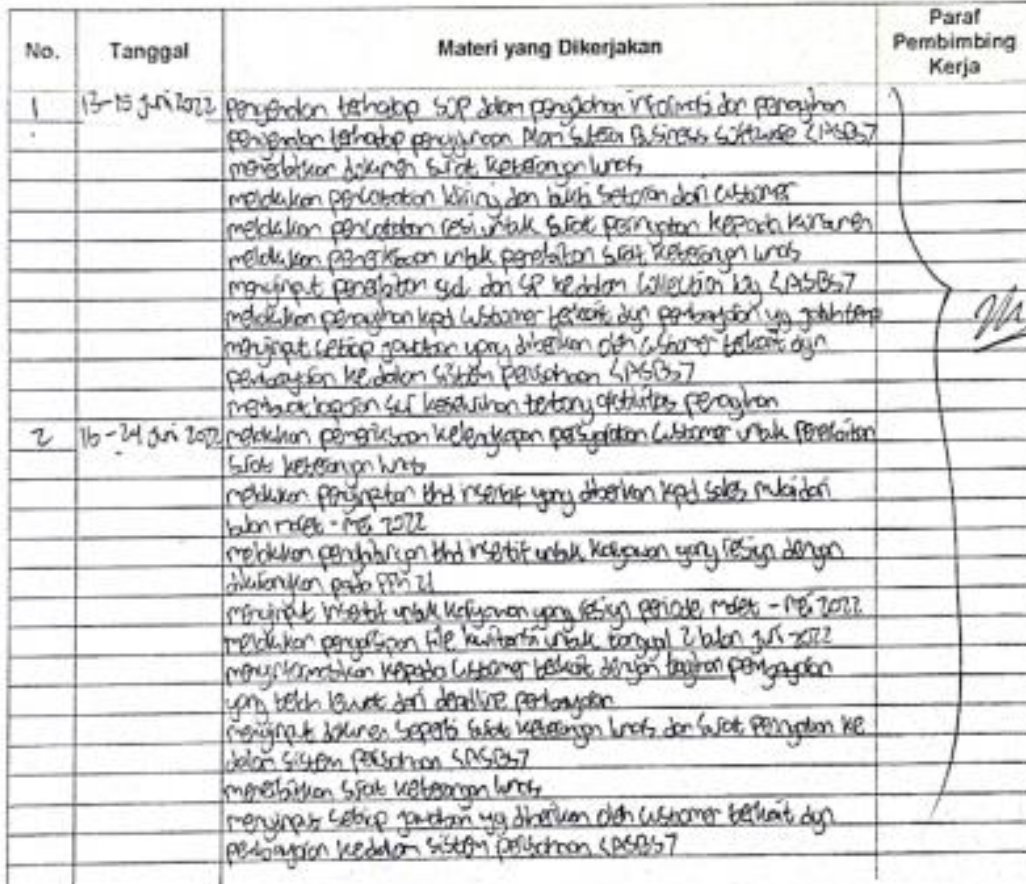 No. Tanggal Materi yang Dikerjakan Paraf Pembimbing Kerja
1 13-15 Juni 2022 pengenalan terhadap SOP dalam pengolahan informasi dan penagihan
pengenalan terhadap penggunaan Plan Business Software (PSBS7
menerbitkan dokumen surat keterangan lunas
melakukan pencatatan kliring dan bukti setoran dari customer
melakukan pencatatan resi untuk surat pernyataan kepada konsumen
melakukan pemeriksaan untuk penerbitan surat keterangan lunas
menginput penerbitan dan SP kedalam collection log (PSBS7
melakukan penagihan kpd customer terkait dgn pembayaran yg jatuh temp
menginput setiap jawaban yang diberikan oleh customer terkait dgn
pembayaran ke dalam sistem perusahaan (PSBS7
membuat laporan keseluruhan tentang aktivitas penagihan
2 16-24 Juni 2022 melakukan pemeriksaan kelengkapan persyaratan customer untuk penerbitan
surat keterangan lunas
melakukan penginputan thd insentif yang diberikan kpd sales mulai dari
bulan maret - mei 2022
melakukan penghitungan thd insentif untuk karyawan yang resign dengan
dikurangkan pada PPh 21
menginput insentif untuk karyawan yang resign periode maret - mei 2022
melakukan pengarsipan file kwitansi untuk tanggal 2 bulan juni 2022
menginformasikan kepada customer terkait dengan tagihan pembayaran
yang telah lewat dari deadline pembayaran
menginput dokumen seperti surat keterangan lunas dan surat pernyataan ke
dalam sistem perusahaan (PSBS7
menerbitkan surat keterangan lunas
menginput setiap jawaban yg diberikan oleh customer terkait dgn
pembayaran kedalam sistem perusahaan (PSBS7